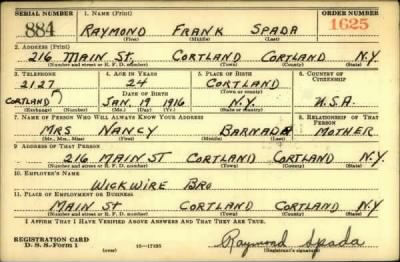 SERIAL NUMBER 1. NAME (Print) ORDER NUMBER
884 RAYMOND FRANK SPADA 1625
(First) (Middle) (Last)
2. ADDRESS (Print)
216 MAIN ST. CORTLAND CORTLAND N.Y.
(Number and street or R. F. D. number) (Town) (County) (State)
3. TELEPHONE 4. AGE IN YEARS 5. PLACE OF BIRTH 6. COUNTRY OF CITIZENSHIP
2127 24 CORTLAND
DATE OF BIRTH (Town or county)
CORTLAND JAN. 19 1916 N.Y. U.S.A.
(Exchange) (Number) (Mo.) (Day) (Yr.) (State or country)
7. NAME OF PERSON WHO WILL ALWAYS KNOW YOUR ADDRESS 8. RELATIONSHIP OF THAT PERSON
MRS NANCY BARNADA MOTHER
(Mr., Mrs., Miss) (First) (Middle) (Last)
9. ADDRESS OF THAT PERSON
216 MAIN ST CORTLAND CORTLAND N.Y.
(Number and street or R. F. D. number) (Town) (County) (State)
10. EMPLOYER'S NAME
WICKWIRE BRO
11. PLACE OF EMPLOYMENT OR BUSINESS
MAIN ST CORTLAND CORTLAND N.Y.
(Number and street or R. F. D. number) (Town) (County) (State)
I AFFIRM THAT I HAVE VERIFIED ABOVE ANSWERS AND THAT THEY ARE TRUE.
REGISTRATION CARD
D. S. S. Form 1 (over) 16-17105 Raymond Spada
(Registrant's signature)